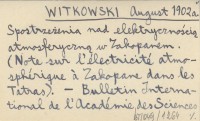 WITKOWSKI August 1902a
Spostrzeżenia nad elektrycznością
atmosferyczną w Zakopanem.
(Note sur l'électricité atmo-
sphérique à Zakopane dans les
Tatras). - Bulletin Internat-
ional de l'Académie des Sciences